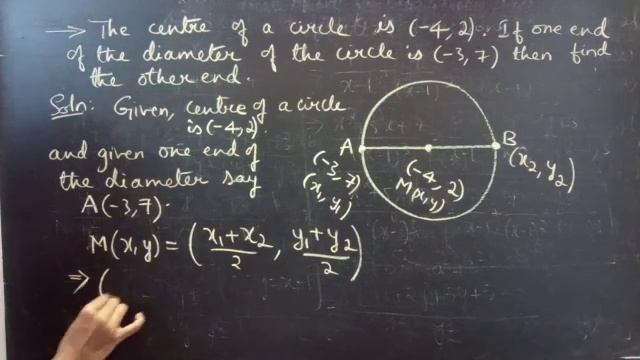 → The centre of a circle is (-4, 2). If one end
of the diameter of the circle is (-3, 7) then find
the other end.
Soln: Given, centre of a circle
is (-4, 2).
and given one end of
the diameter say
A(-3, 7).
M(x, y) = (x₁+x₂/2, y₁+y₂/2)
⇒ (
A
B
(-3, 7)
(x₁, y₁)
(-4, 2)
M(x, y)
(x₂, y₂)